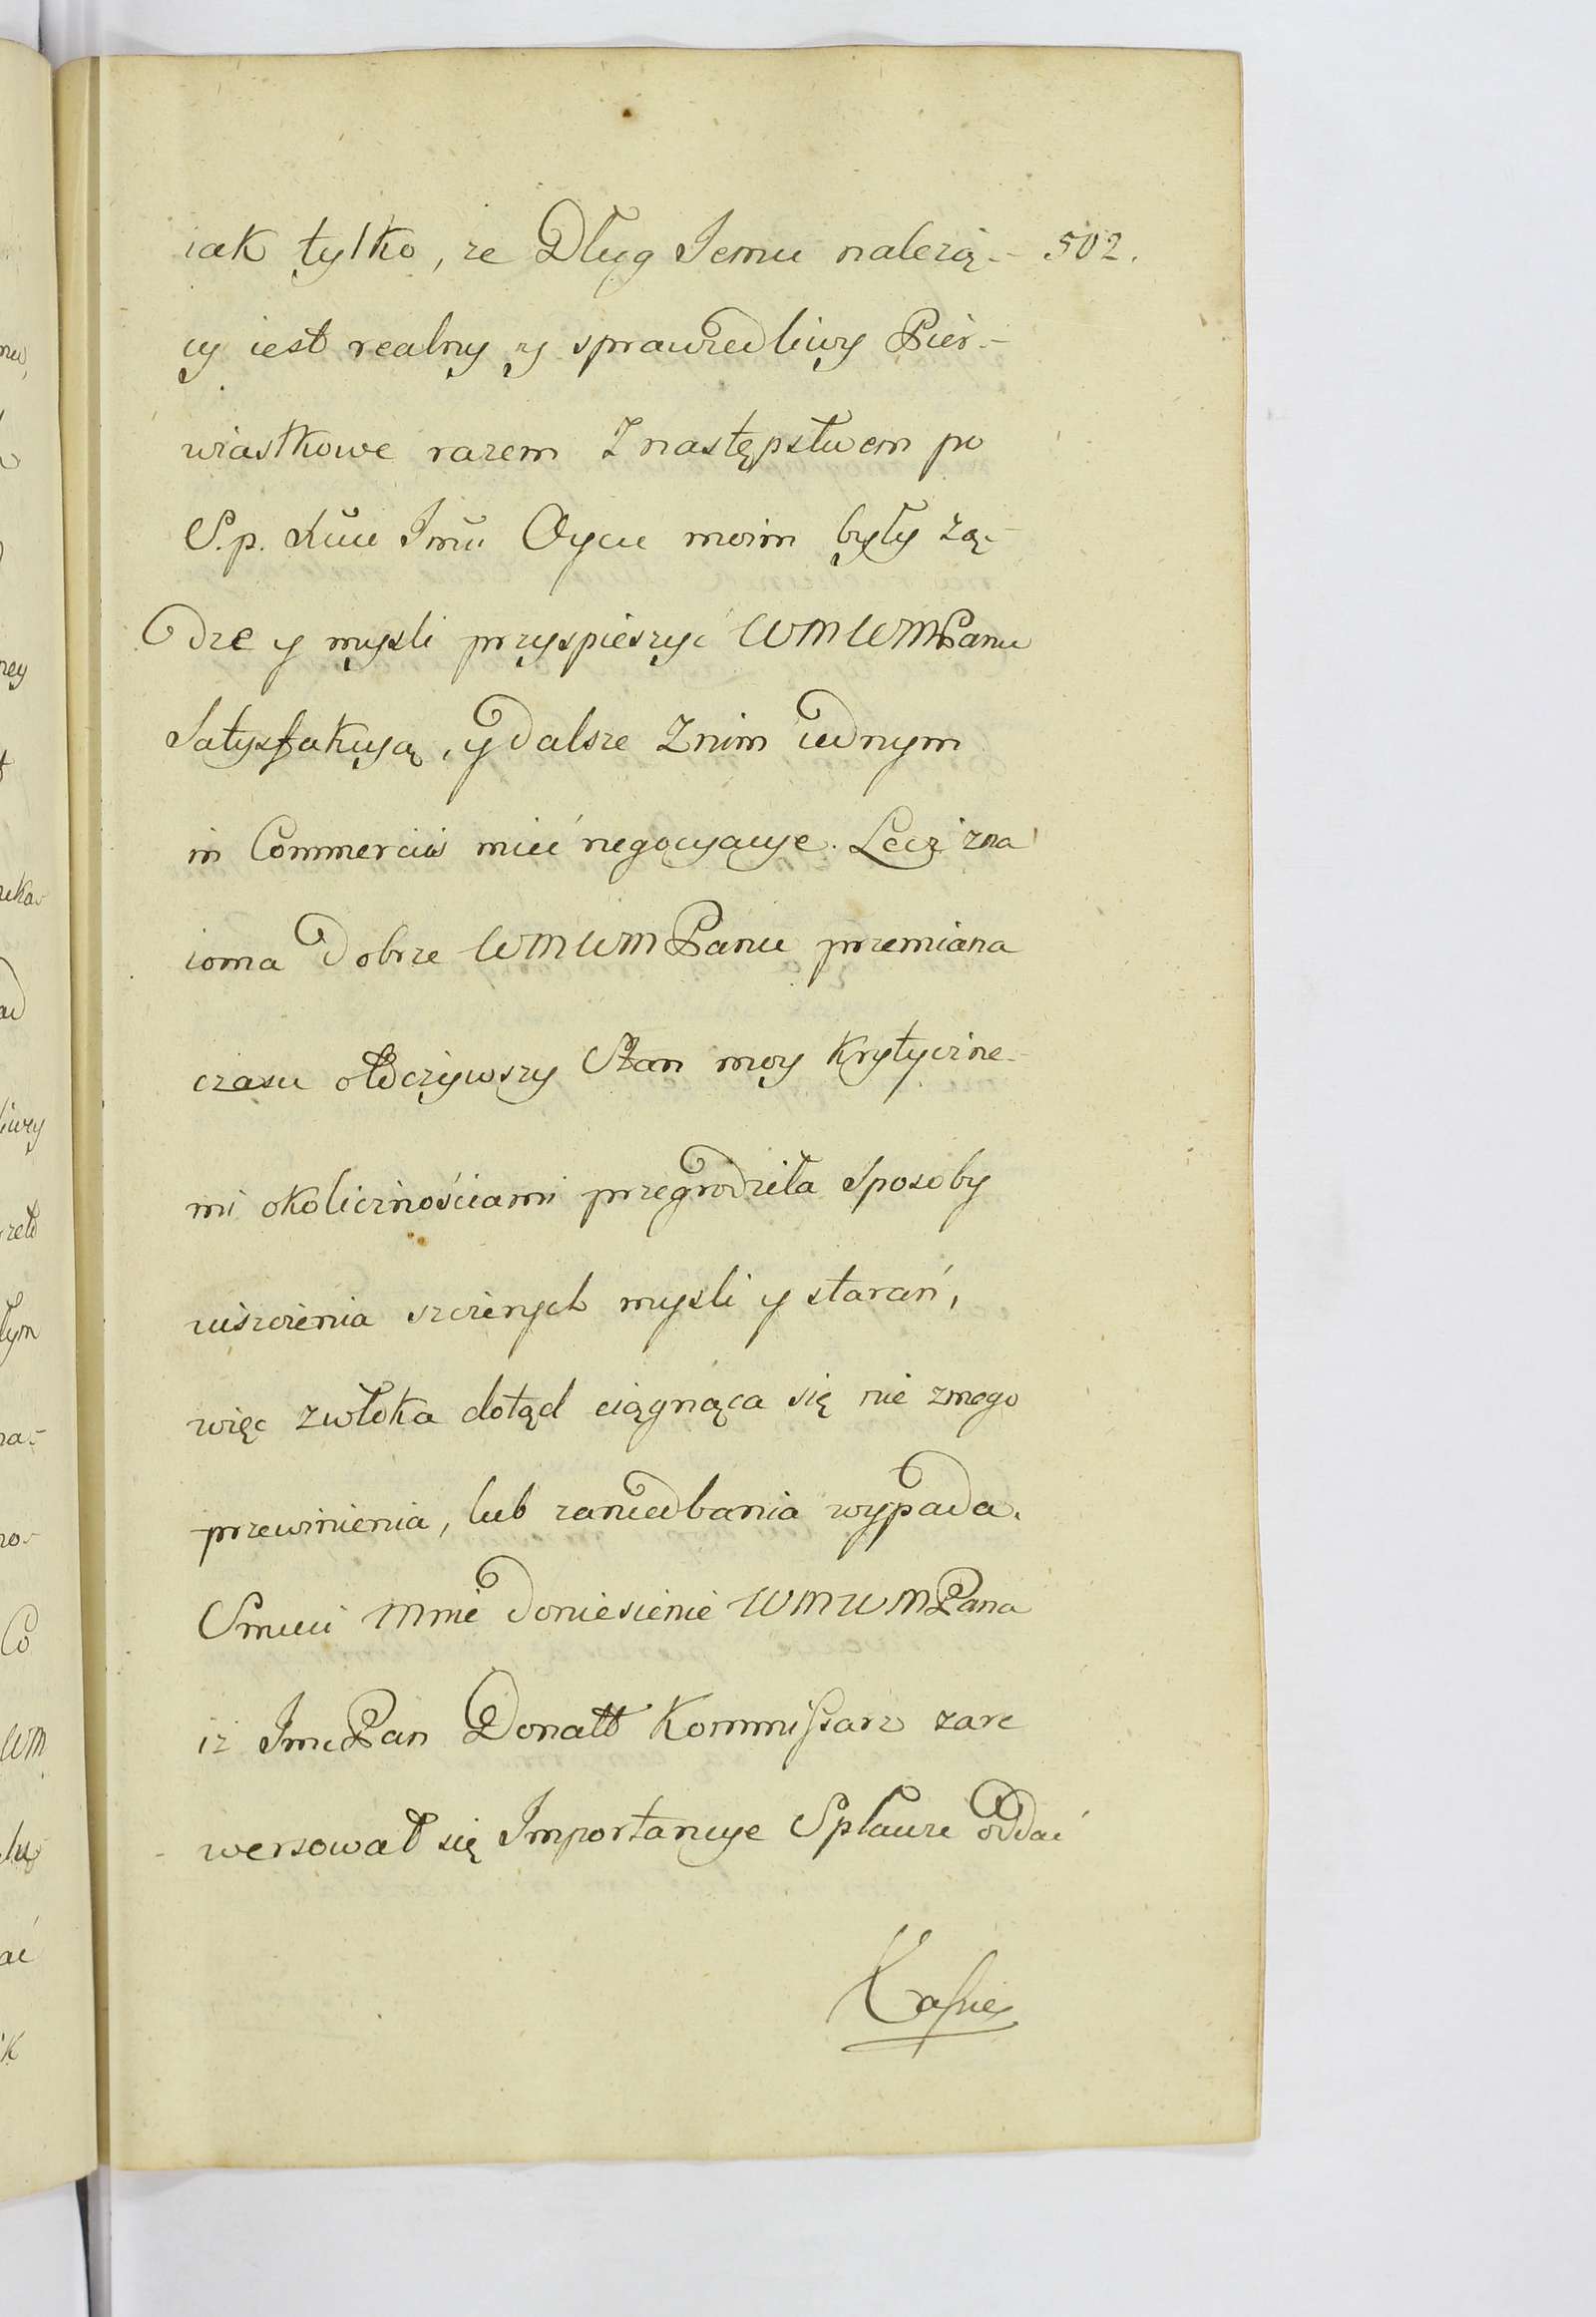 iak tylko, ze Dług Jemu nalezią- 502.
cy iest realny y sprawiedliwy Pier-
wiastkowe razem Z następstwem po
S.p. Xciu Jmci Oycu moim były Zą-
dze y mysli przyspieszyć WMWMPanu
Satysfakcyą, y dalsze Znim iednym
in Commerciis mieć negocyacye. Lecz zna
ioma dobrze WMWMPanu przemiana
czasu otoczywszy Stan moy Krytyczne-
mi okolicznościami przegrodziła Sposoby
uiszczenia szczerych mysli y starań,
więc zwłoka dotąd ciągnąca się nie zmego
przewinienia, lub zaniedbania wypada.
Smuci Mnie doniesienie WMWMPana
iz JmcPan Donatt Kommissarz zare
wersował się Importancye Spławu oddać